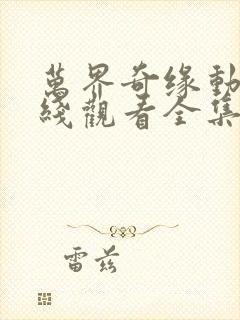 萬界奇缘動
綫觀看全集
雷兹